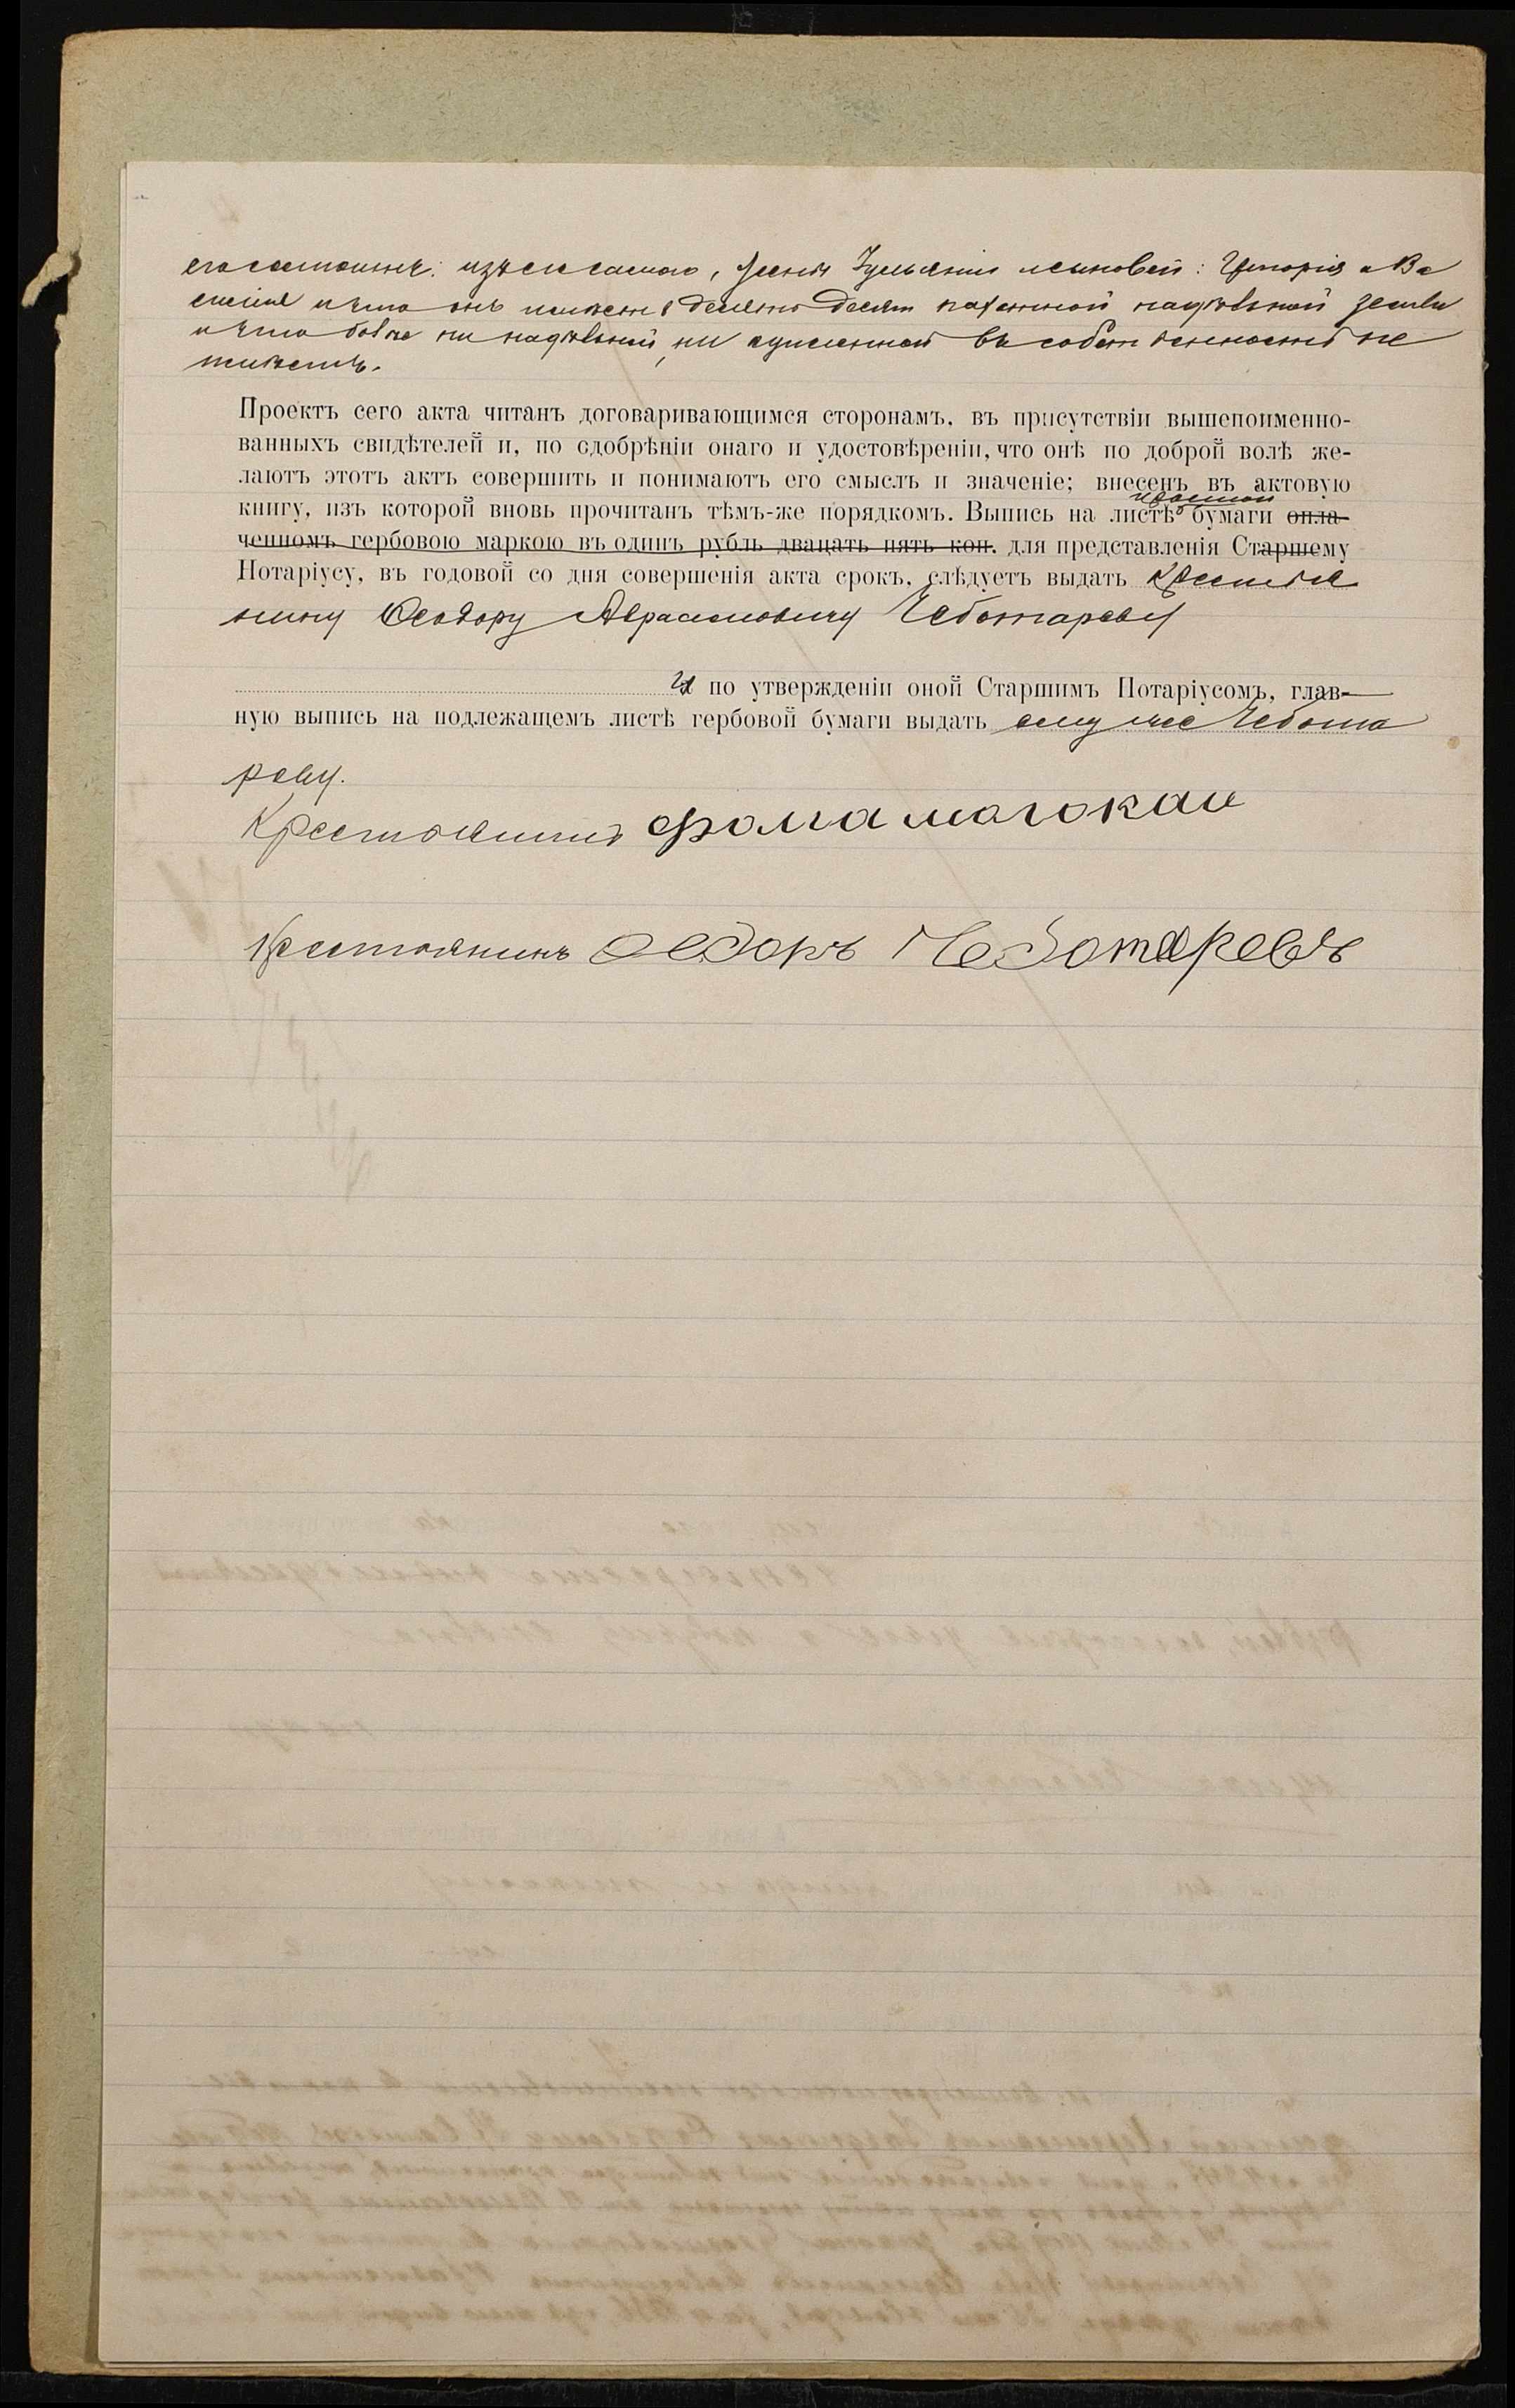 его состоитъ: изъ его самаго, жены Зульяніи и сыновей: Григорія и Ва
силія и что онъ имѣетъ десятин пахатной надѣльной земли
и что болѣе ни надѣльной, ни купленной въ собственность не
имѣетъ.
Проектъ сего акта читанъ договаривающимся сторонамъ, въ присутствіи вышепоименно-
ванныхъ свидѣтелей и, по одобрѣніи онаго и удостовѣреніи, что онѣ по доброй волѣ же-
лаютъ этотъ актъ совершить и понимаютъ его смыслъ и значеніе; внесенъ въ актовую
простой
книгу, изъ которой вновь прочитанъ тѣмъ-же порядкомъ. Выпись на листѣ бумаги опла-
ченномъ гербовою маркою въ одинъ рубль двацать пять коп. для представленія Старшему
Нотаріусу, въ годовой со дня совершенія акта срокъ, слѣдуетъ выдать крестья
нину Ѳеодору Аврамовичу Чеботареву
И по утвержденіи оной Старшимъ Нотаріусомъ, глав-
ную выпись на подлежащемъ листѣ гербовой бумаги выдать ему же Чебота
реву.
Крестьянинъ Фома
Крестьянинъ Ѳедоръ Чеботаревъ